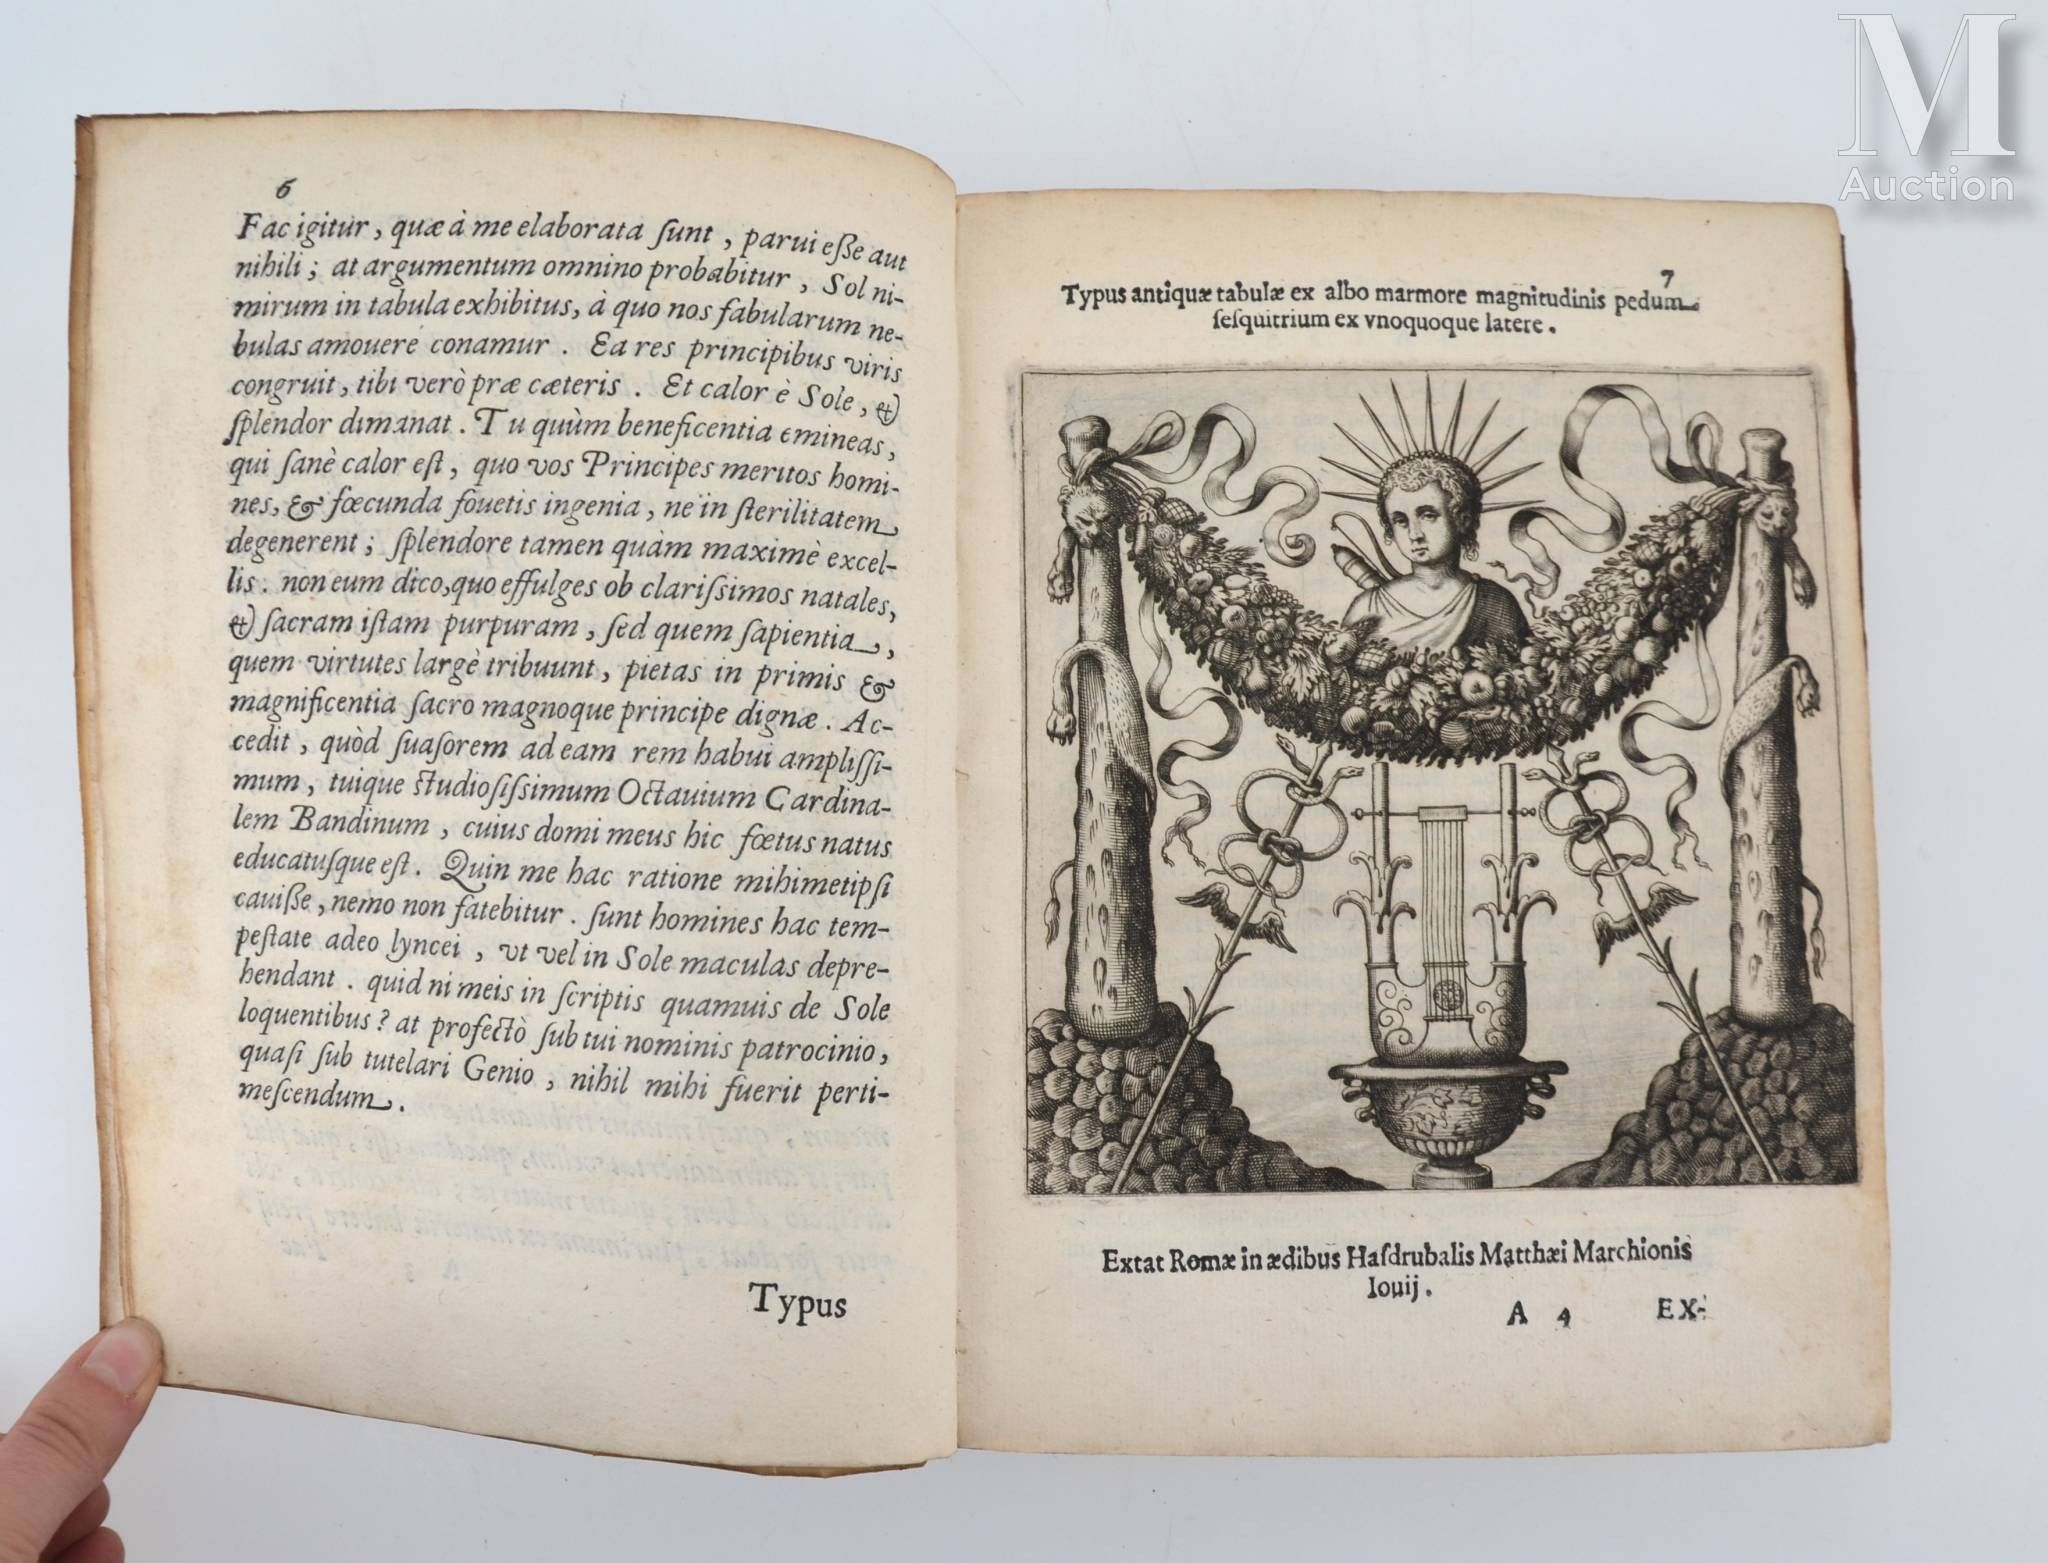 6
Fac igitur, quæ à me elaborata ſunt, parui eſſe aut
nihili; at argumentum omnino probabitur, Sol ni-
mirum in tabula exhibitus, à quo nos fabularum ne-
bulas amouere conamur. Ea res principibus viris
congruit, tibi verò præ cæteris. Et calor è Sole, &
ſplendor dimanat. Tu quùm beneficentia emineas,
qui ſanè calor eſt, quo vos Principes meritos homi-
nes, & fœcunda fouetis ingenia, ne in ſterilitatem
degenerent; ſplendore tamen quàm maximè excel-
lis. non eum dico, quo effulges ob clariſsimos natales,
& ſacram iſtam purpuram, ſed quem ſapientia,
quem virtutes largè tribuunt, pietas in primis &
magnificentia ſacro magnoque principe dignæ. Ac-
cedit, quòd ſuaſorem ad eam rem habui ampliſſi-
mum, tuique ſtudioſiſsimum Octauium Cardina-
lem Bandinum, cuius domi meus hic fœtus natus
educatuſque eſt. Quin me hac ratione mihimetipſi
cauiſſe, nemo non fatebitur. ſunt homines hac tem-
peſtate adeo lyncei, vt vel in Sole maculas depre-
hendant. quid ni meis in ſcriptis quamuis de Sole
loquentibus? at profectò ſub tui nominis patrocinio,
quaſi ſub tutelari Genio, nihil mihi fuerit perti-
meſcendum.
Typus
7
Typus antiquæ tabulæ ex albo marmore magnitudinis pedum
ſeſquitrium ex vnoquoque latere.
Extat Romæ in ædibus Haſdrubalis Matthæi Marchionis
Iouij.
A 4 EX-
M
Auction